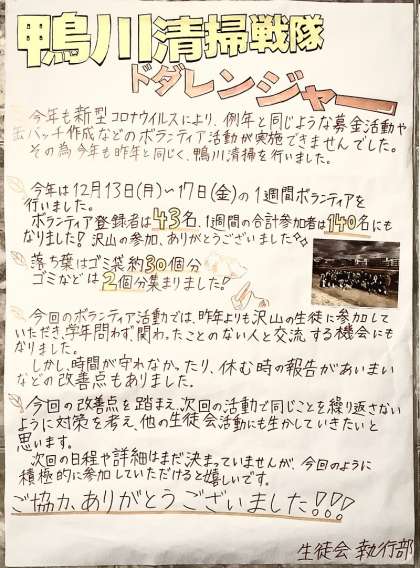 鴨川清掃戦隊
ドダレンジャー
今年も新型コロナウイルスにより、例年と同じような募金活動や
缶バッチ作成などのボランティア活動が実施できませんでした。
その為今年も昨年と同じく、鴨川清掃を行いました。
今年は12月13日(月)〜17日(金)の1週間ボランティアを
行いました。
ボランティア登録者は43名、1週間の合計参加者は140名にも
なりました!沢山の参加、ありがとうございました
落ち葉はゴミ袋約30個分
ゴミなどは2個分集まりました!
今回のボランティア活動では、昨年よりも沢山の生徒に参加して
いただき、学年問わず、関わったことのない人と交流する機会にも
なりました。
しかし、時間が守れなかったり、休む時の報告があいまい
などの改善点もありました。
今回の改善点を踏まえ、次回の活動で同じことを繰り返さない
ように対策を考え、他の生徒会活動にも生かしていきたいと
思います。
次回の日程や詳細はまだ決まっていませんが、今回のように
積極的に参加していただけると嬉しいです。
ご協力、ありがとうございました!!!
生徒会 執行部